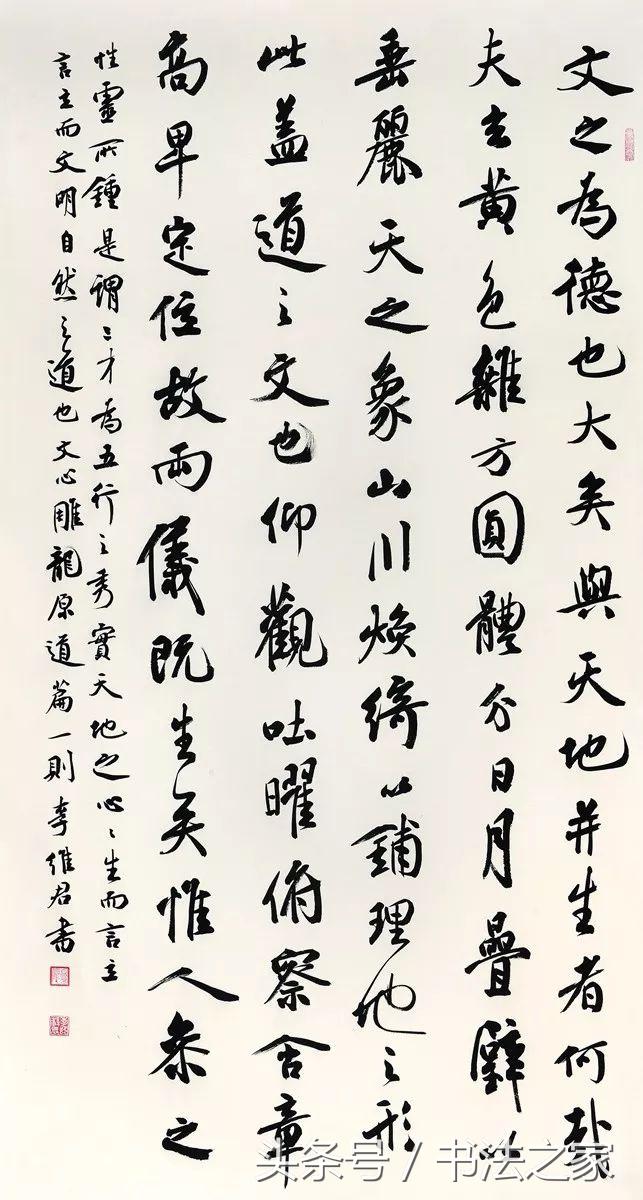 文之為德也大矣與天地并生者何哉
夫玄黃色雜方圓體分日月疊璧以
垂麗天之象山川煥綺以鋪理地之形
此蓋道之文也仰觀吐曜俯察含章
高卑定位故兩儀既生矣惟人參之
性靈所鍾是謂三才為五行之秀實天地之心〻生而言立
言立而文明自然之道也文心雕龍原道篇一則李維君書
头条号 / 书法之家